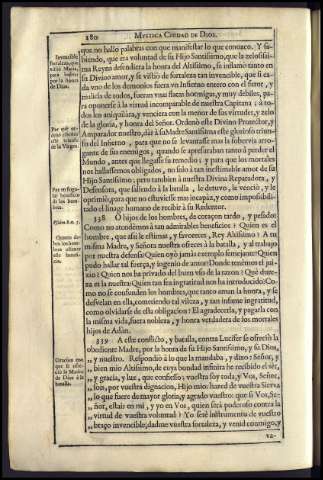 280 MYSTICA CIUDAD DE DIOS.
que no hallo palabras con que manifestar lo que conozco. Y sa-
biendo, que era voluntad de su Hijo Santissimo, que la zelosissi-
ma Reyna defendiera la honra del Altissimo, se inflamò tanto en
su Divino amor, y se vistiò de fortaleza tan invencible, que si ca-
da vno de los demonios fuera vn Infierno entero con el furor, y
malicia de todos, fueran vnas hormigas, y muy debiles, pa-
ra oponerse à la virtud incomparable de nuestra Capitana; à to-
dos los aniquilara, y venciera con la menor de sus virtudes, y zelo
de la gloria, y honra del Señor. Ordenò este Divino Protector, y
Amparador nuestro, dàr à su Madre Santissima este glorioso triun-
fo del Infierno, para que no se levantasse mas la sobervia arro-
gante de sus enemigos, quando se apressuraban tanto à perder el
Mundo, antes que llegasse su remedio; y para que los mortales
nos hallassemos obligados, no solo à tan inestimable amor de su
Hijo Santissimo, pero tambien à nuestra Divina Reparadora, y
Defensora, que saliendo à la batalla, le detuvo, le venciò, y le
oprimiò, para que no estuviesse mas incapàz, y como impossibili-
tado el linage humano de recibir à su Redentor.
338 O hijos de los hombres, de coraçon tardo, y pesado!
Como no atendemos à tan admirables beneficios? Quien es el
hombre, que assi le estimas, y favoreces, Rey Altissimo? A tu
misma Madre, y Señora nuestra ofreces à la batalla, y al trabajo
por nuestra defensa? Quien oyò jamàs exemplo semejante? Quien
pudo hallar tal fuerça, y ingenio de amor? Donde tenemos el jui-
zio? Quien nos ha privado del buen vso de la razon? Què dure-
za es la nuestra? Quien tan fea ingratitud nos ha introducido? Co-
mo no se confunden los hombres, que tanto aman la honra, y se
desvelan en ella, cometiendo tal vileza, y tan infame ingratitud,
como olvidarse de esta obligacion? El agradecerla, y pagarla con
la misma vida, fuera nobleza, y honra verdadera de los mortales
hijos de Adàn.
339 A este conflicto, y batalla, contra Lucifer se ofreciò la
obediente Madre, por la honra de su Hijo Santissimo, y su Dios,
,, y nuestro. Respondiò à lo que la mandaba, y dixo: Señor, y
,, bien mio Altissimo, de cuya bondad infinita he recibido el sèr,
,, y gracia, y luz, que confiesso; vuestra soy toda, y Vos, Señor,
,, sois, por vuestra dignacion, Hijo mio; hazed de vuestra Sierva
,, lo que fuere de mayor gloria, y agrado vuestro: que si Vos, Se-
,, ñor, estais en mi, y yo en Vos, quien serà poderoso contra la
,, virtud de vuestra voluntad? Yo serè instrumento de vuestro
,, braço invencible; dadme vuestra fortaleza, y venid conmigo, y
va-